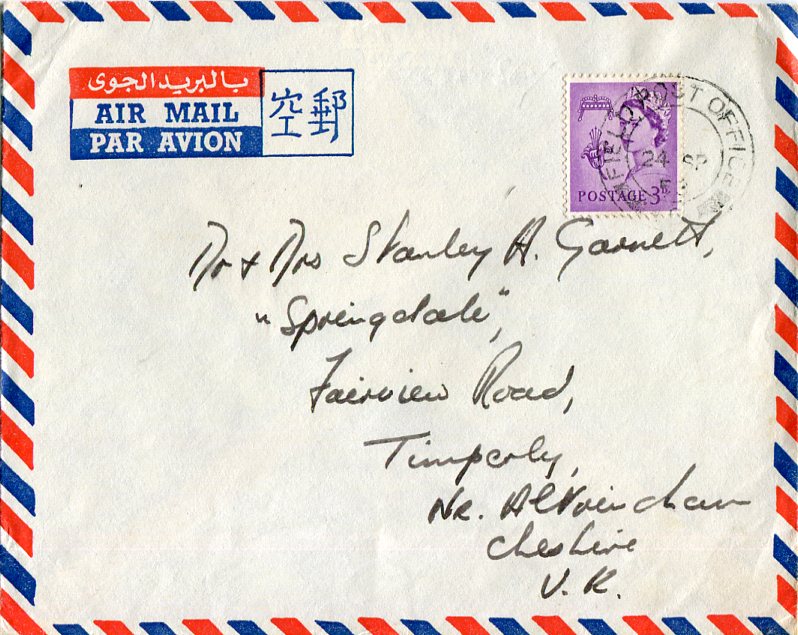 بالبريد الجوى
AIR MAIL
PAR AVION
空郵
POSTAGE 3D
FIELD POST OFFICE
24 SP
Mr & Mrs Stanley A. Garnett,
"Springdale",
Fairview Road,
Timperly,
Nr. Altrincham
Cheshire
U.K.